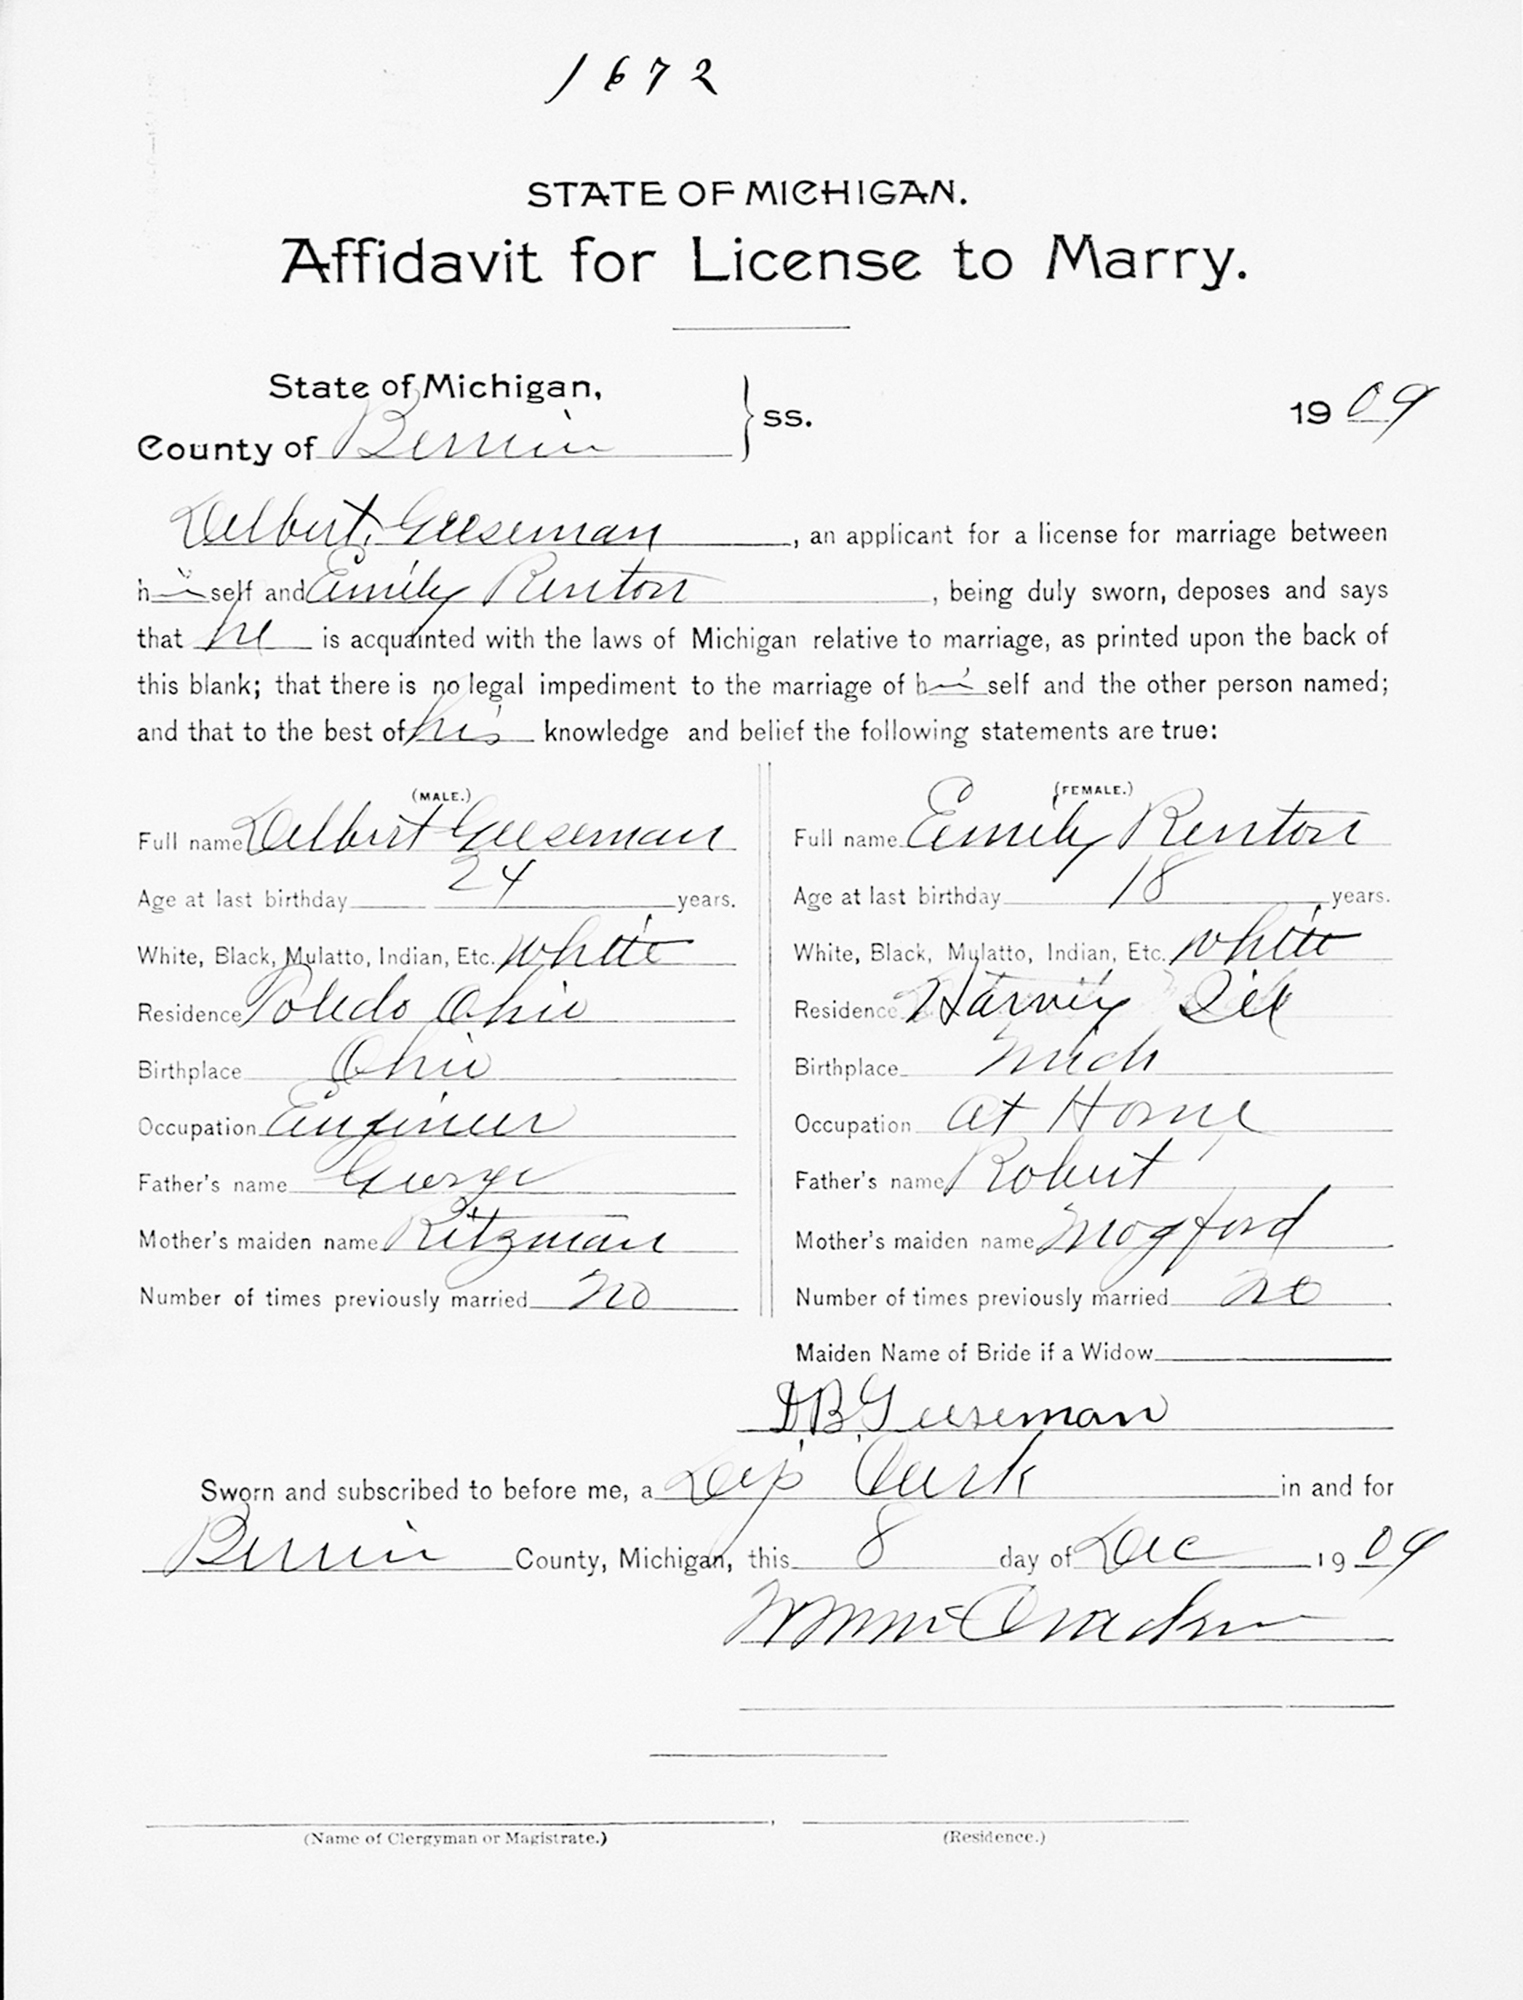 1672
STATE OF MICHIGAN.
Affidavit for License to Marry.
State of Michigan,
County of Berrien } ss. 1909
Delbert Geeseman, an applicant for a license for marriage between
himself and Emily Renton, being duly sworn, deposes and says
that he is acquainted with the laws of Michigan relative to marriage, as printed upon the back of
this blank; that there is no legal impediment to the marriage of himself and the other person named;
and that to the best of his knowledge and belief the following statements are true:
(MALE.)
Full name Delbert Geeseman
Age at last birthday 24 years.
White, Black, Mulatto, Indian, Etc. white
Residence Toledo Ohio
Birthplace Ohio
Occupation Engineer
Father's name George
Mother's maiden name Ritzman
Number of times previously married no
(FEMALE.)
Full name Emily Renton
Age at last birthday 18 years.
White, Black, Mulatto, Indian, Etc. white
Residence Harvey Ill
Birthplace Mich
Occupation at Home
Father's name Robert
Mother's maiden name Mogford
Number of times previously married no
Maiden Name of Bride if a Widow
D.B. Geeseman
Sworn and subscribed to before me, a Dep Clerk in and for
Berrien County, Michigan, this 8 day of Dec 1909
(Name of Clergyman or Magistrate.) , (Residence.)